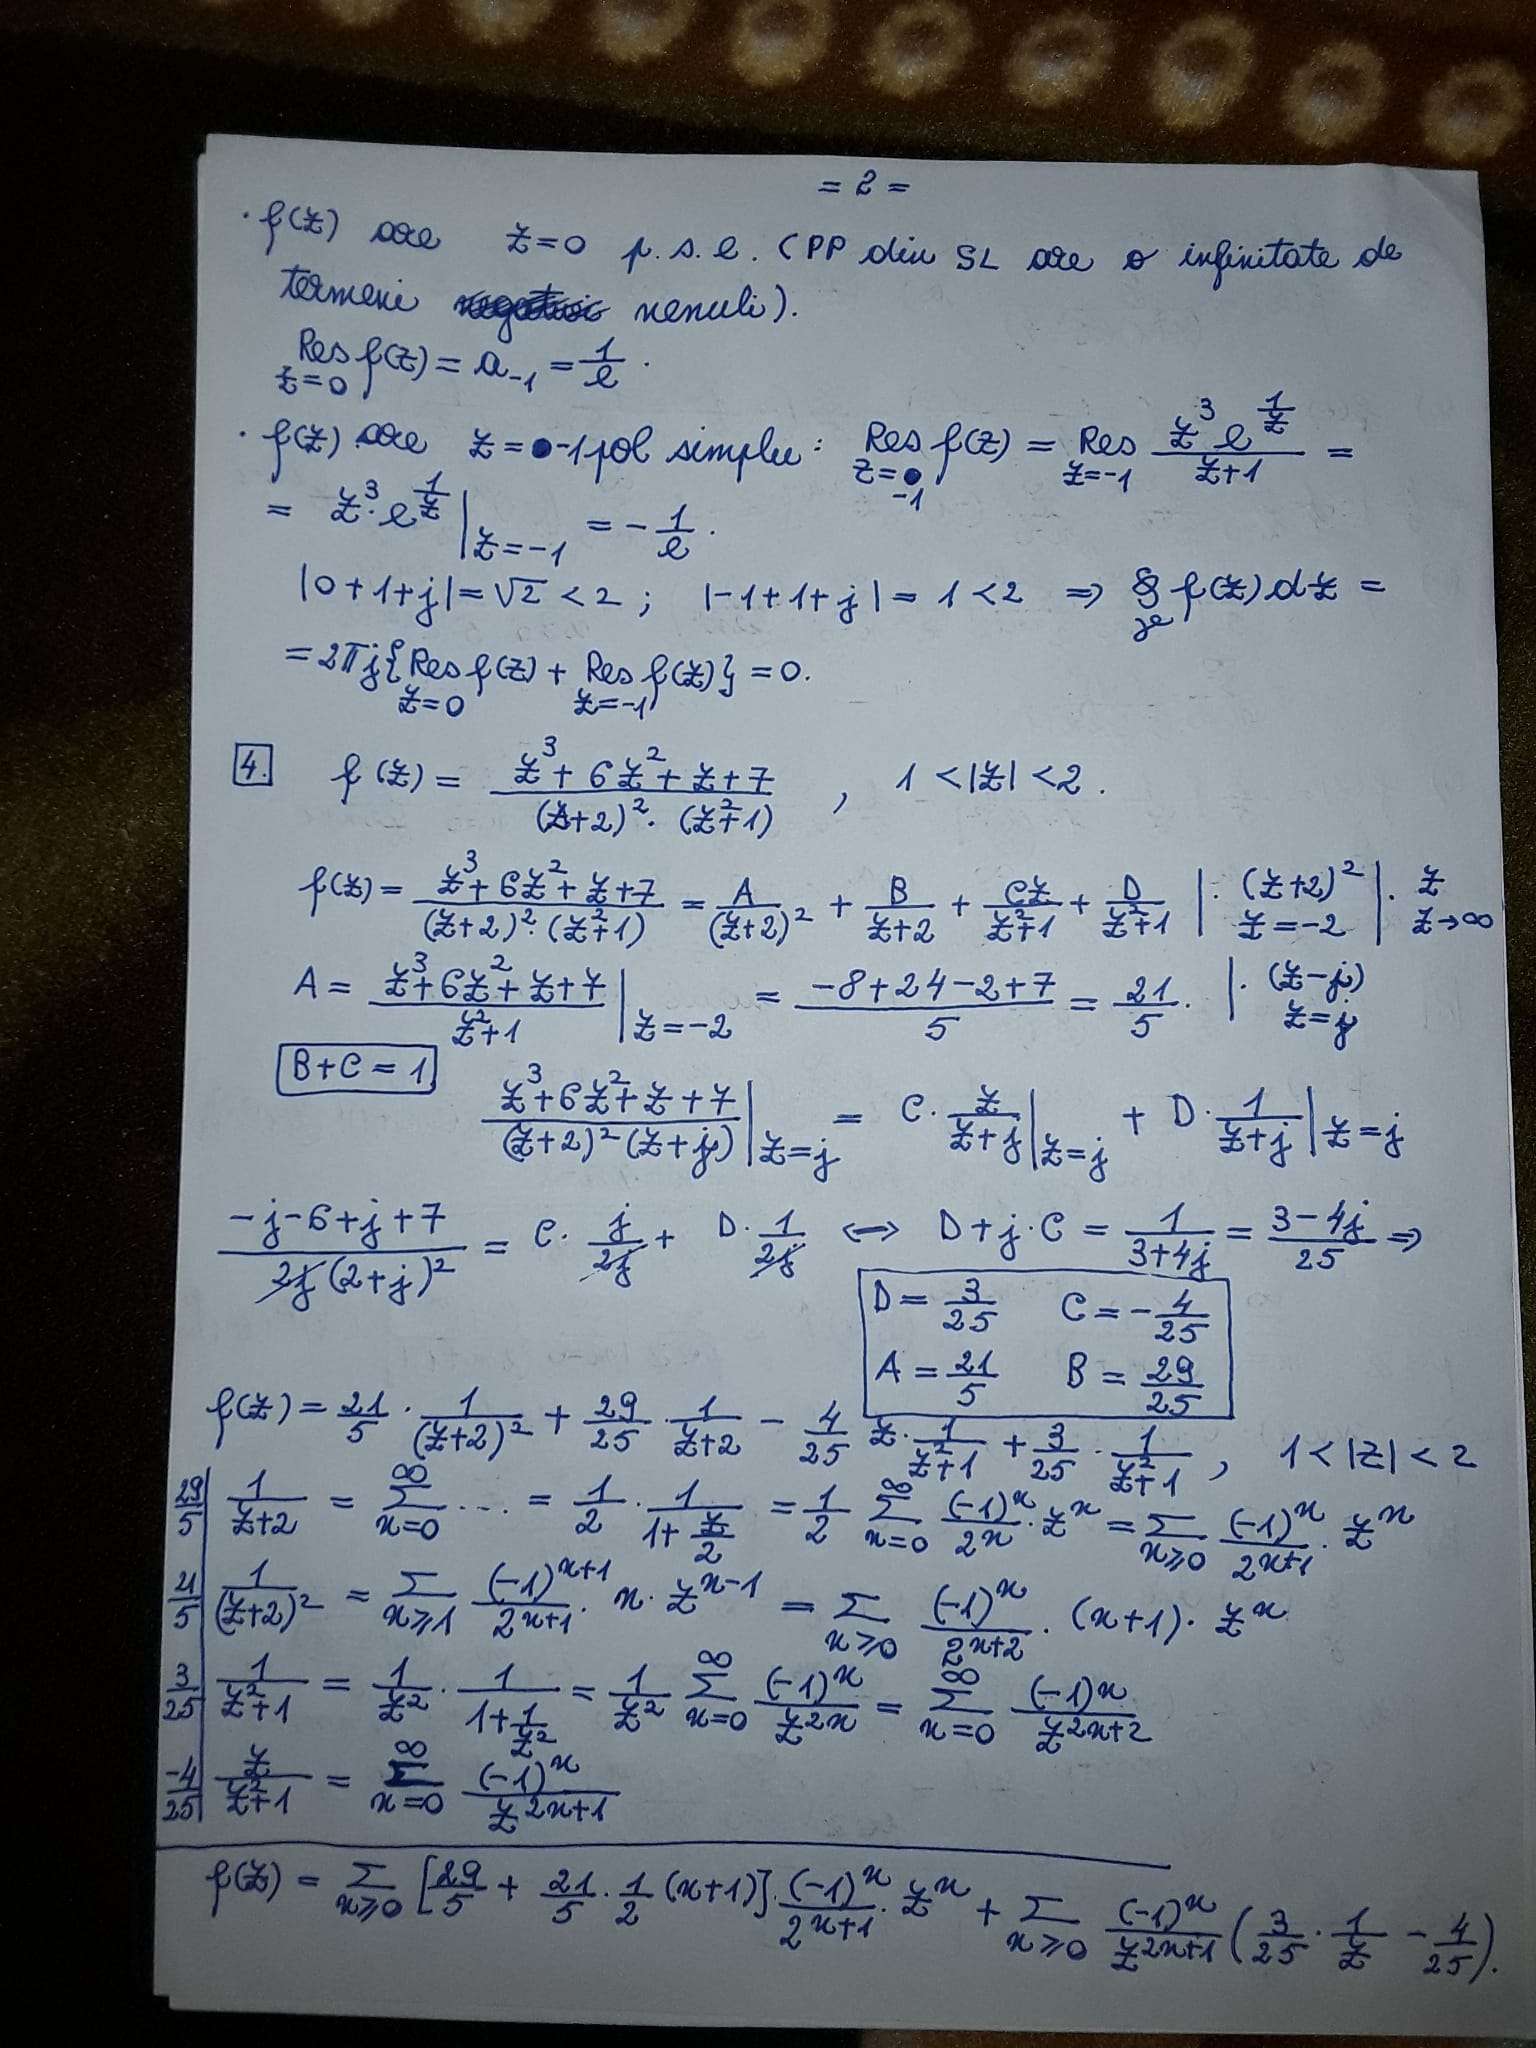 = 2 =
· f(z) are z=0 p.s.e. (PP din SL are o infinitate de
termeni nenuli).
Res f(z) = a₋₁ = 1/e .
z=0
· f(z) are z=-1 pol simplu: Res f(z) = Res z³e^(1/z)/(z+1) =
z=-1 z=-1
= z³·e^(1/z) |z=-1 = -1/e .
|0+1+j| = √2 < 2 ; |-1+1+j| = 1 < 2 ⇒ ∮ f(z)dz =
= 2πj{Res f(z) + Res f(z)} = 0.
z=0 z=-1
4. f(z) = (z³+6z²+z+7)/((z+2)²·(z²+1)) , 1<|z|<2.
f(z) = (z³+6z²+z+7)/((z+2)²·(z²+1)) = A/(z+2)² + B/(z+2) + Cz/(z²+1) + D/(z²+1) |· (z+2)² z=-2 |· z z→∞
A = (z³+6z²+z+7)/(z²+1) |z=-2 = (-8+24-2+7)/5 = 21/5 . |· (z-j) z=j
B+C = 1
(z³+6z²+z+7)/((z+2)²(z+j)) |z=j = C· z/(z+j) |z=j + D· 1/(z+j) |z=j
(-j-6+j+7)/(2j(2+j)²) = C· j/2j + D· 1/2j ⟷ D+j·C = 1/(3+4j) = (3-4j)/25 ⇒
D = 3/25 C = -4/25
A = 21/5 B = 29/25
f(z) = 21/5 · 1/(z+2)² + 29/25 · 1/(z+2) - 4/25 z· 1/(z²+1) + 3/25 · 1/(z²+1) , 1<|z|<2
29/5 | 1/(z+2) = Σ(n=0,∞) ... = 1/2 · 1/(1+z/2) = 1/2 Σ(n=0,∞) (-1)ⁿ/2ⁿ · zⁿ = Σ(n≥0) (-1)ⁿ/2ⁿ⁺¹ · zⁿ
21/5 | 1/(z+2)² = Σ(n≥1) (-1)ⁿ⁺¹/2ⁿ⁺¹ · n· zⁿ⁻¹ = Σ(n≥0) (-1)ⁿ/2ⁿ⁺² · (n+1)· zⁿ
3/25 | 1/(z²+1) = 1/z² · 1/(1+1/z²) = 1/z² Σ(n=0,∞) (-1)ⁿ/z²ⁿ = Σ(n=0,∞) (-1)ⁿ/z²ⁿ⁺²
-4/25 | z/(z²+1) = Σ(n=0,∞) (-1)ⁿ/z²ⁿ⁺¹
f(z) = Σ(n≥0) [29/5 + 21/5 · 1/2 (n+1)]· (-1)ⁿ/2ⁿ⁺¹ · zⁿ + Σ(n≥0) (-1)ⁿ/z²ⁿ⁺¹ (3/25 · 1/z - 4/25).